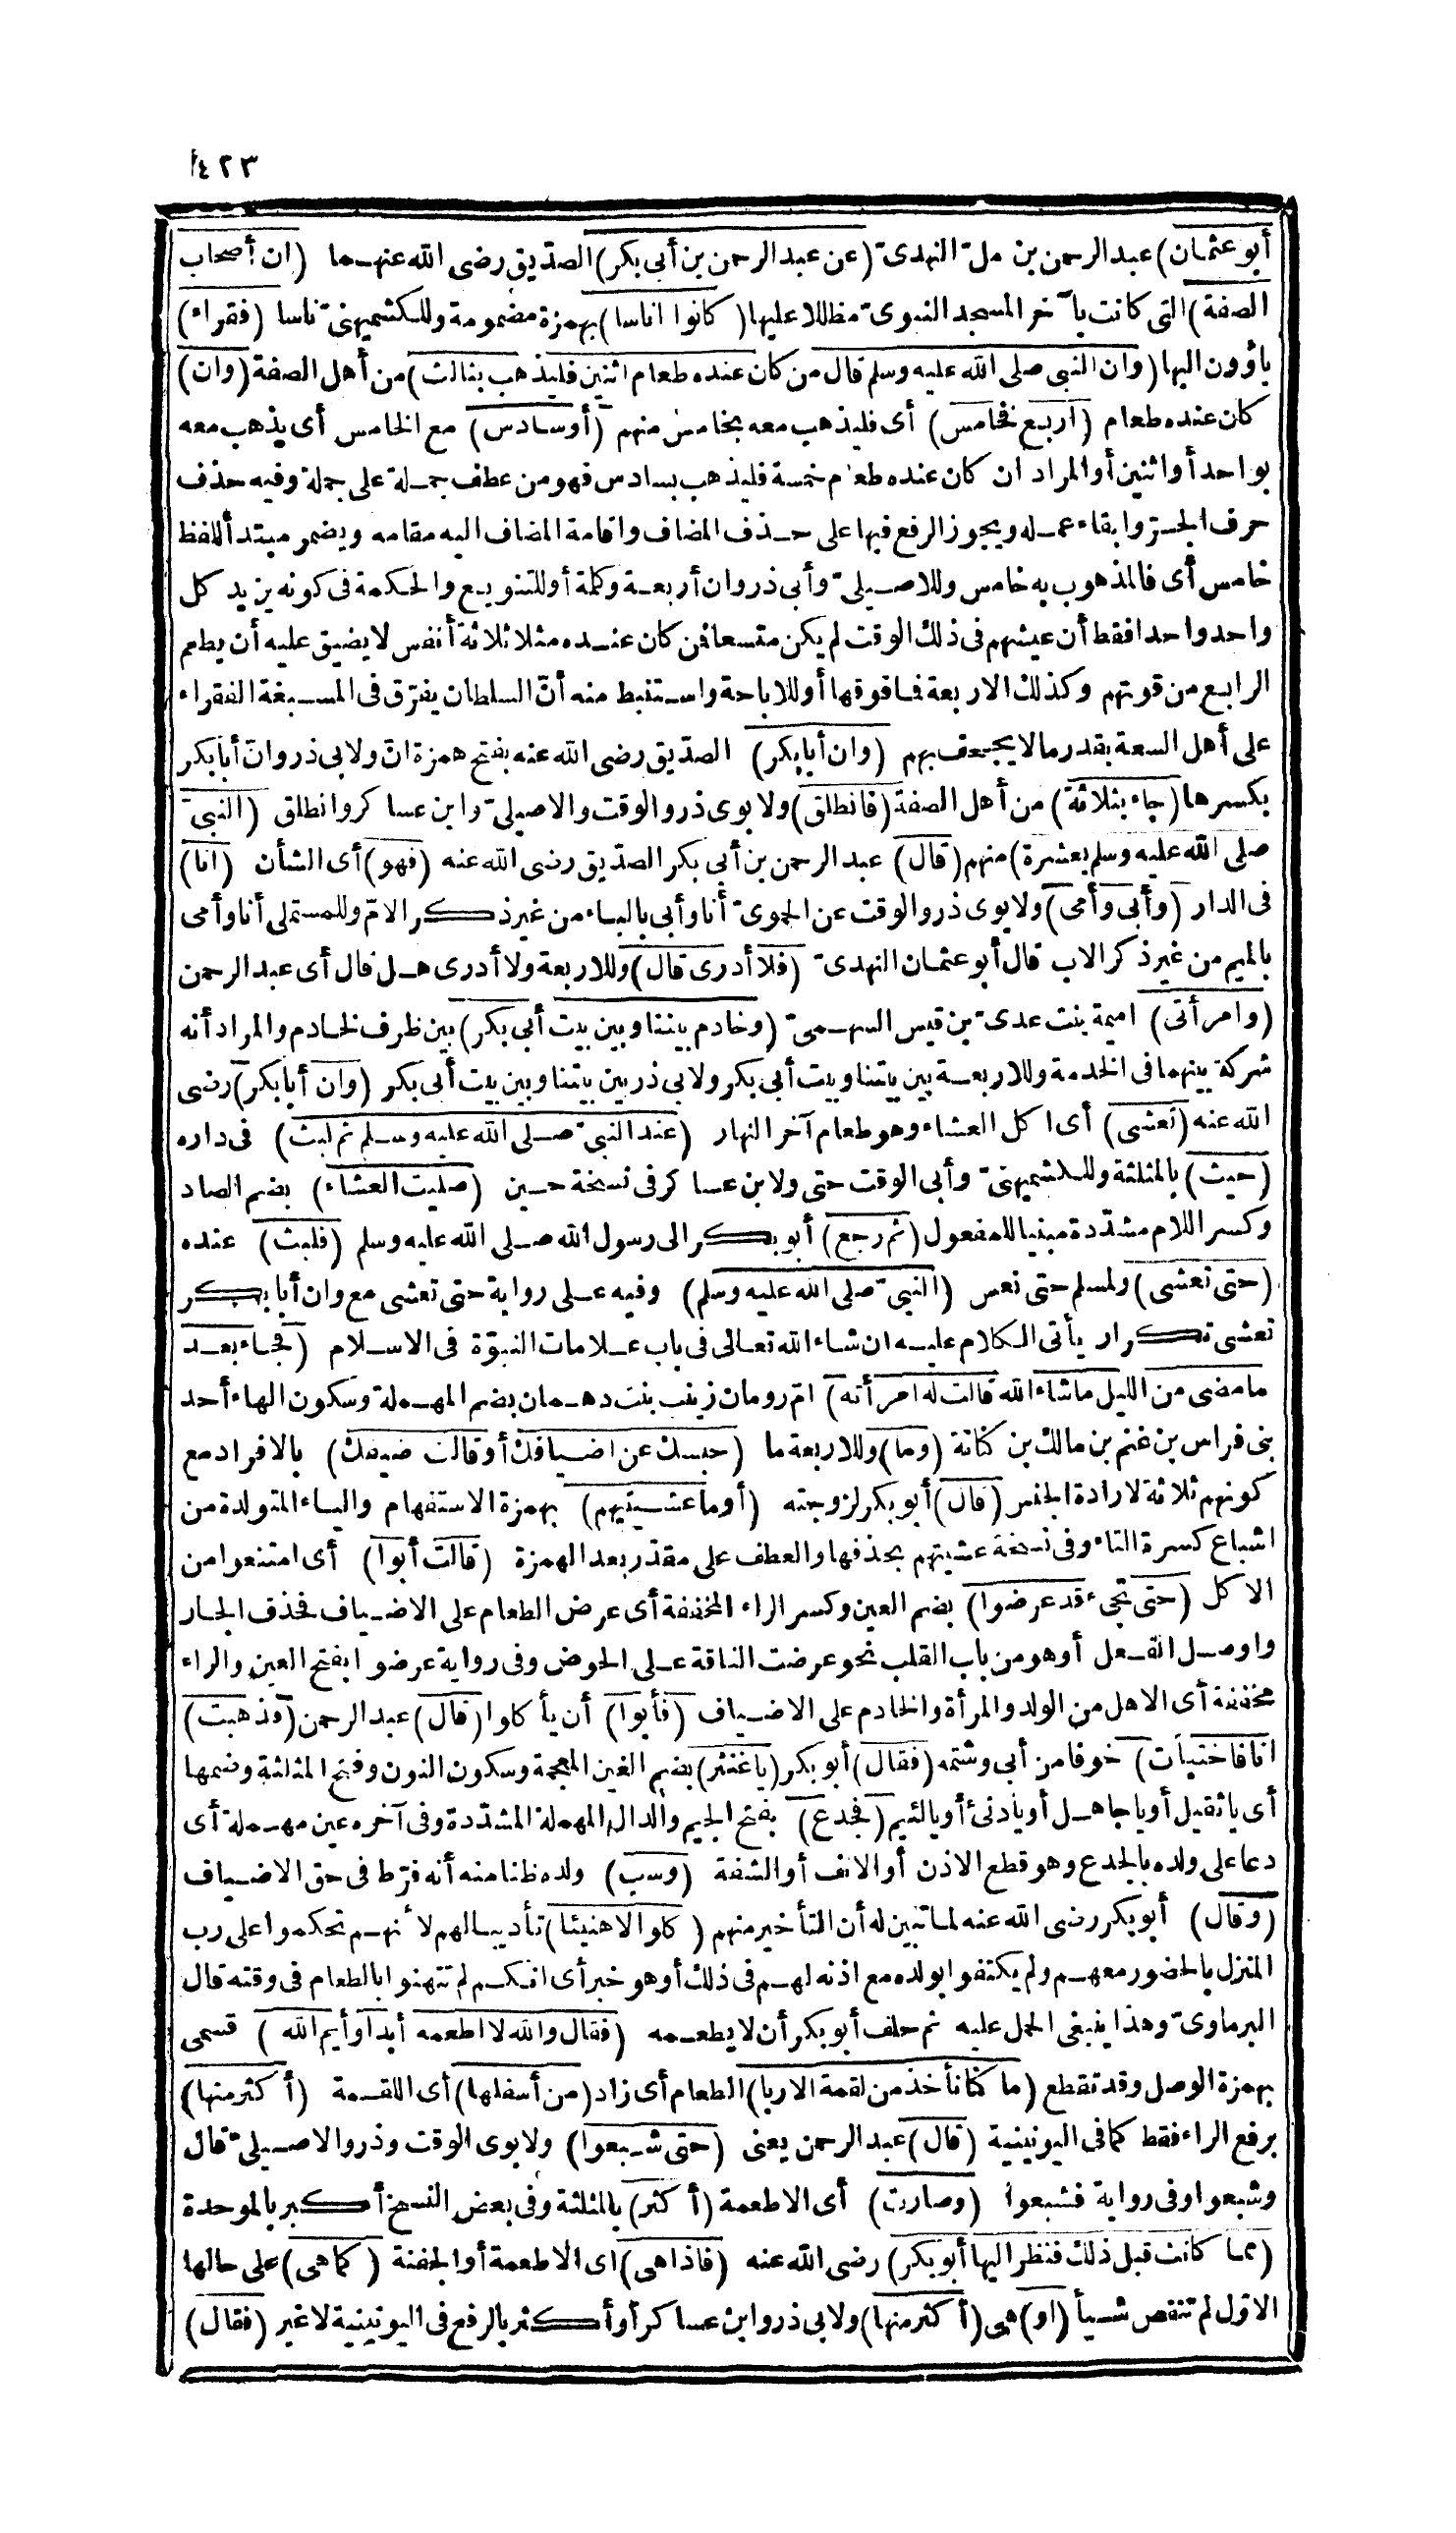 ٤٢٣
أبو عثمان) عبد الرحمن بن ملّ النهدىّ (عن عبد الرحمن بن أبى بكر) الصدّيق رضى الله عنهما (ان أصحاب
الصفة) التى كانت بآخر المسجد النبوىّ مظللا عليها (كانوا اناسا) بهمزة مضمومة وللكشميهنىّ ناسا (فقراء)
يأوون اليها (وان النبى صلى الله عليه وسلم قال من كان عنده طعام اثنين فليذهب بثالث) من أهل الصفة (وان)
كان عنده طعام (اربع فخامس) أى فليذهب معه بخامس منهم (أوسادس) مع الخامس أى يذهب معه
بواحد أواثنين أوالمراد ان كان عنده طعام خمسة فليذهب بسادس فهو من عطف جملة على جملة وفيه حذف
حرف الجرّ وابقاء عمله ويجوز الرفع فيها على حذف المضاف واقامة المضاف اليه مقامه ويضمر مبتدأ للفظ
خامس أى فالمذهوب به خامس وللاصيلىّ وأبى ذر وان أربعة وكلمة أو للتنويع والحكمة فى كونه يزيد كل
واحد واحدا فقط أن عيشهم فى ذلك الوقت لم يكن متسعا فمن كان عنده مثلا ثلاثة أنفس لا يضيق عليه أن يطعم
الرابع من قوتهم وكذلك الاربعة فما فوقها أو للاباحة واستنبط منه أنّ السلطان يفرّق فى المسبغة الفقراء
على أهل السعة بقدر مالا يجحف بهم (وان أبابكر) الصدّيق رضى الله عنه بفتح همزة انّ ولابى ذر وانّ أبابكر
بكسرها (جاء بثلاثة) من أهل الصفة (فانطلق) ولابوى ذر والوقت والاصيلىّ وابن عساكر وانطلق (النبىّ
صلى الله عليه وسلم بعشرة) منهم (قال) عبد الرحمن بن أبى بكر الصدّيق رضى الله عنه (فهو) أى الشأن (انا)
فى الدار (وأبى وأمى) ولابوى ذر والوقت عن الحموىّ أنا وأبى بالباء من غير ذكر الامّ وللمستملى أنا وأمى
بالميم من غير ذكر الاب قال أبو عثمان النهدىّ (فلا أدرى قال) وللاربعة ولا أدرى هل قال أى عبد الرحمن
(وامرأتى) اميمة بنت عدىّ بن قيس السهمىّ (وخادم بيننا وبين بيت أبى بكر) بين ظرف لخادم والمراد أنه
شركة بينهما فى الخدمة وللاربعة بين بيتنا وبيت أبى بكر ولابى ذر بين بيتنا وبين بيت أبى بكر (وان أبابكر) رضى
الله عنه (تعشى) أى اكل العشاء وهو طعام آخر النهار (عند النبىّ صلى الله عليه وسلم ثم لبث) فى داره
(حيث) بالمثلثة وللكشميهنىّ وأبى الوقت حتى ولابن عساكر فى نسخة حسين (صليت العشاء) بضم الصاد
وكسر اللام مشدّدة مبنيا للمفعول (ثم رجع) أبو بكر الى رسول الله صلى الله عليه وسلم (فلبث) عنده
(حتى تعشى) ولمسلم حتى نعس (النبىّ صلى الله عليه وسلم) وفيه على رواية حتى تعشى مع وان أبا بكر
تعشى تكرار يأتى الكلام عليه ان شاء الله تعالى فى باب علامات النبوّة فى الاسلام (فجاء بعد
ما مضى من الليل ماشاء الله قالت له امرأته) امّ رومان زينب بنت دهمان بضم المهملة وسكون الهاء أحد
بنى فراس بن غنم بن مالك بن كنانة (وما) وللاربعة ما (حبسك عن اضيافك أو قالت ضيفك) بالافراد مع
كونهم ثلاثة لارادة الجنس (قال) أبو بكر لزوجته (أوما عشيتيهم) بهمزة الاستفهام والياء المتولدة من
اشباع كسرة التاء وفى نسخة عشيتهم بحذفها والعطف على مقدّر بعد الهمزة (قالت أبوا) أى امتنعوا من
الاكل (حتى تجىء قد عرضوا) بضم العين وكسر الراء المخففة أى عرض الطعام على الاضياف فحذف الجار
واوصل الفعل أوهو من باب القلب نحو عرضت الناقة على الحوض وفى رواية عرضوا بفتح العين والراء
مخففة أى الاهل من الولد والمرأة والخادم على الاضياف (فأبوا) أن يأكلوا (قال) عبد الرحمن (فذهبت)
انا فاختبأت) خوفا من أبى وشتمه (فقال) أبو بكر (ياغنثر) بضم الغين المعجمة وسكون النون وفتح المثلثة وضمها
أى ياثقيل أو ياجاهل أو يادنئ أو يالئيم (فجدع) بفتح الجيم والدال المهملة المشدّدة وفى آخره عين مهملة أى
دعا على ولده بالجدع وهو قطع الاذن أو الانف أو الشفة (وسب) ولده ظنا منه أنه فرّط فى حق الاضياف
(وقال) أبو بكر رضى الله عنه لما تبين له أن التأخير منهم (كلوا لا هنيئا) تأديبا لهم لأنهم تحكموا على رب
المنزل بالحضور معهم ولم يكتفوا بولده مع اذنه لهم فى ذلك أو هو خبر أى انكم لم تتهنوا بالطعام فى وقته قال
البرماوىّ وهذا ينبغى الحمل عليه ثم حلف أبو بكر أن لا يطعمه (فقال والله لا اطعمه أبدا وأيم الله) قسمى
بهمزة الوصل وقد تقطع (ما كنا نأخذ من لقمة الا ربا) الطعام أى زاد (من أسفلها) أى اللقمة (أكثر منها)
برفع الراء فقط كما فى اليونينية (قال) عبد الرحمن يعنى (حتى شبعوا) ولابوى الوقت وذر والاصيلىّ قال
وشبعوا وفى رواية فشبعوا (وصارت) أى الاطعمة (أكثر) بالمثلثة وفى بعض النسخ أكبر بالموحدة
(مما كانت قبل ذلك فنظر اليها أبو بكر) رضى الله عنه (فاذاهى) اى الاطعمة أو الجفنة (كماهى) على حالها
الاوّل لم تنقص شيأ (او) هى (أكثر منها) ولابى ذر وابن عساكر أو أكثر بالرفع فى اليونينية لا غير (فقال)